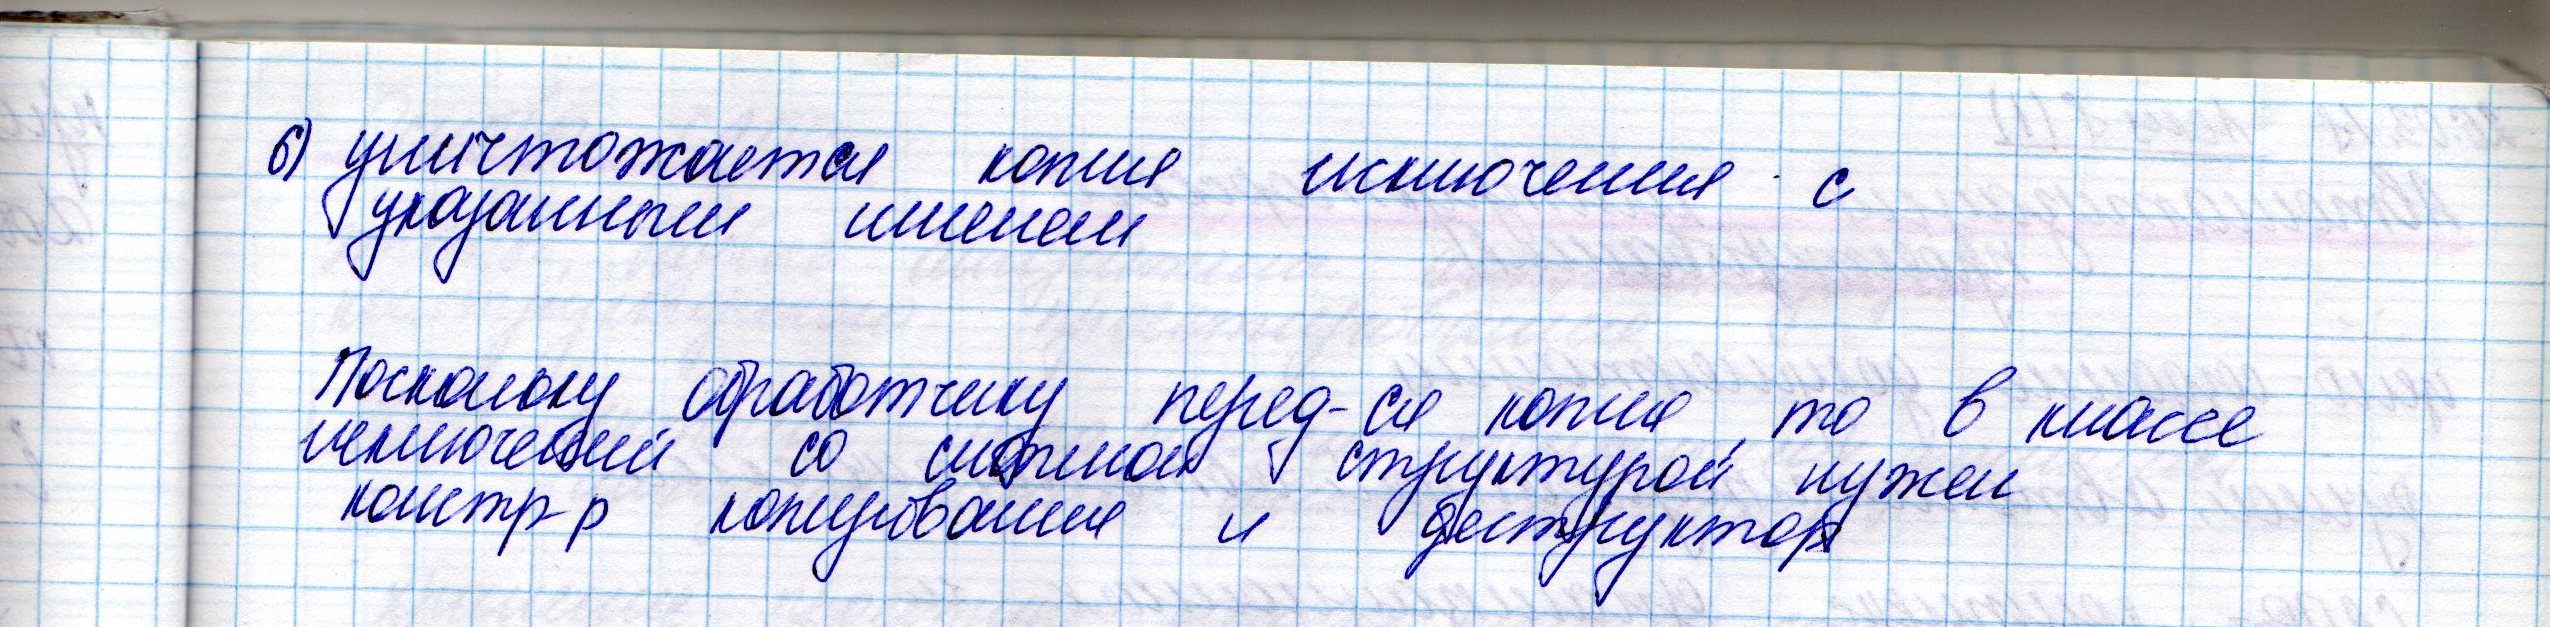 6) уничтожается копия исключения с
указанным именем
Поскольку обработчику перед-ся копия, то в классе
исключений со сложной структурой нужен
констр-р копирования и деструктор